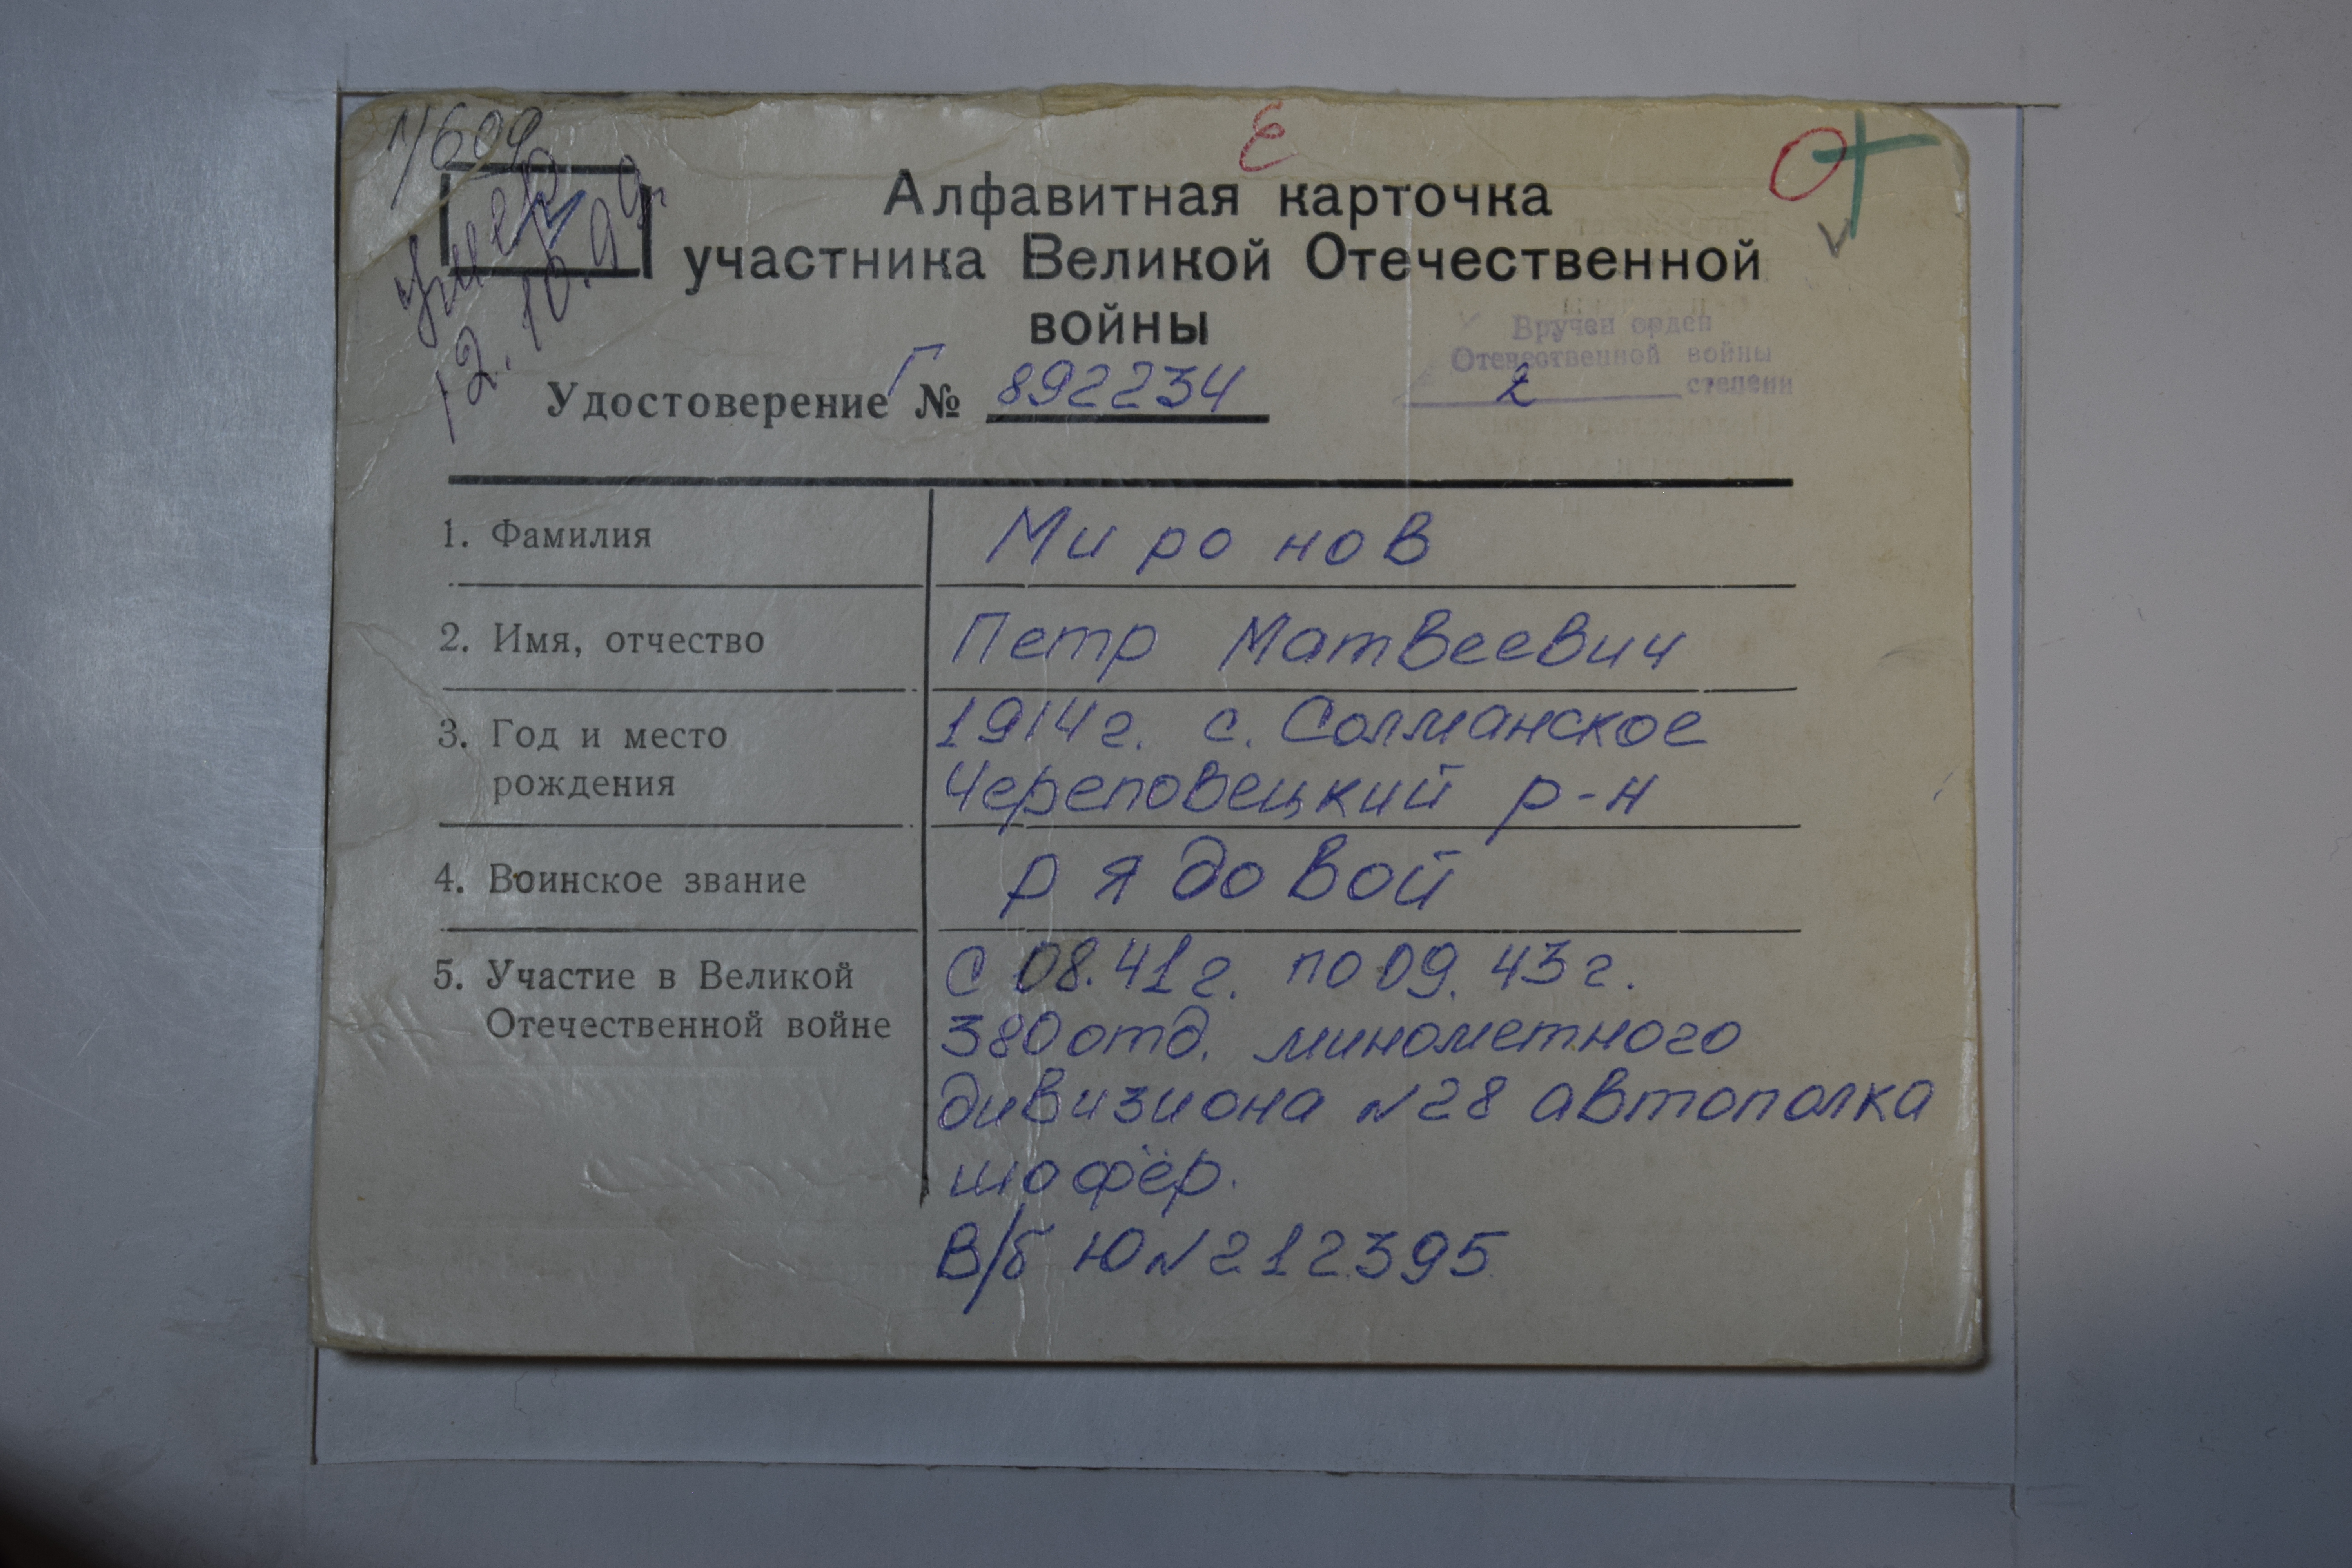 1/609
умер
12.10.99г.
Е
Алфавитная карточка
участника Великой Отечественной
войны
Вручен орден
Отечественной войны
2 степени
Удостоверение Г № 892234
1. Фамилия Миронов
2. Имя, отчество Петр Матвеевич
3. Год и место 1914г. с. Солманское
рождения Череповецкий р-н
4. Воинское звание рядовой
5. Участие в Великой с 08.41г. по 09.43г.
Отечественной войне 380 отд. минометного
дивизиона №28 автополка
шофёр.
В/б Ю№212395